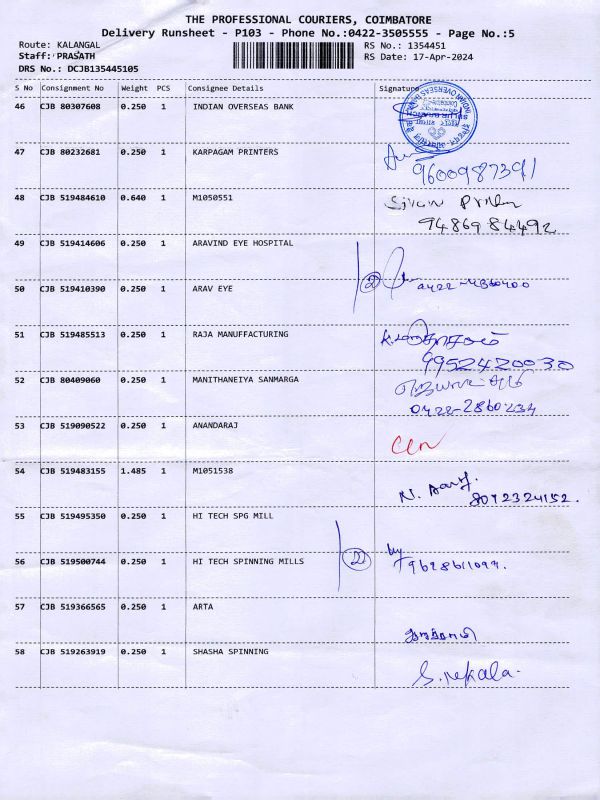 THE PROFESSIONAL COURIERS, COIMBATORE
Delivery Runsheet - P103 - Phone No.:0422-3505555 - Page No.:5
Route: KALANGAL
RS No.: 1354451
Staff: PRASATH
RS Date: 17-Apr-2024
DRS No.: DCJB135445105
S No Consignment No Weight PCS Consignee Details Signature
46 CJB 80307608 0.250 1 INDIAN OVERSEAS BANK
47 CJB 80232681 0.250 1 KARPAGAM PRINTERS
9600987391
48 CJB 519484610 0.640 1 M1050551
9486984492
49 CJB 519414606 0.250 1 ARAVIND EYE HOSPITAL
50 CJB 519410390 0.250 1 ARAV EYE
②
51 CJB 519485513 0.250 1 RAJA MANUFFACTURING
9952420030
52 CJB 80409060 0.250 1 MANITHANEIYA SANMARGA
0422-2860234
53 CJB 519090522 0.250 1 ANANDARAJ
54 CJB 519483155 1.485 1 M1051538
8072324152.
55 CJB 519495350 0.250 1 HI TECH SPG MILL
56 CJB 519500744 0.250 1 HI TECH SPINNING MILLS
②
57 CJB 519366565 0.250 1 ARTA
58 CJB 519263919 0.250 1 SHASHA SPINNING